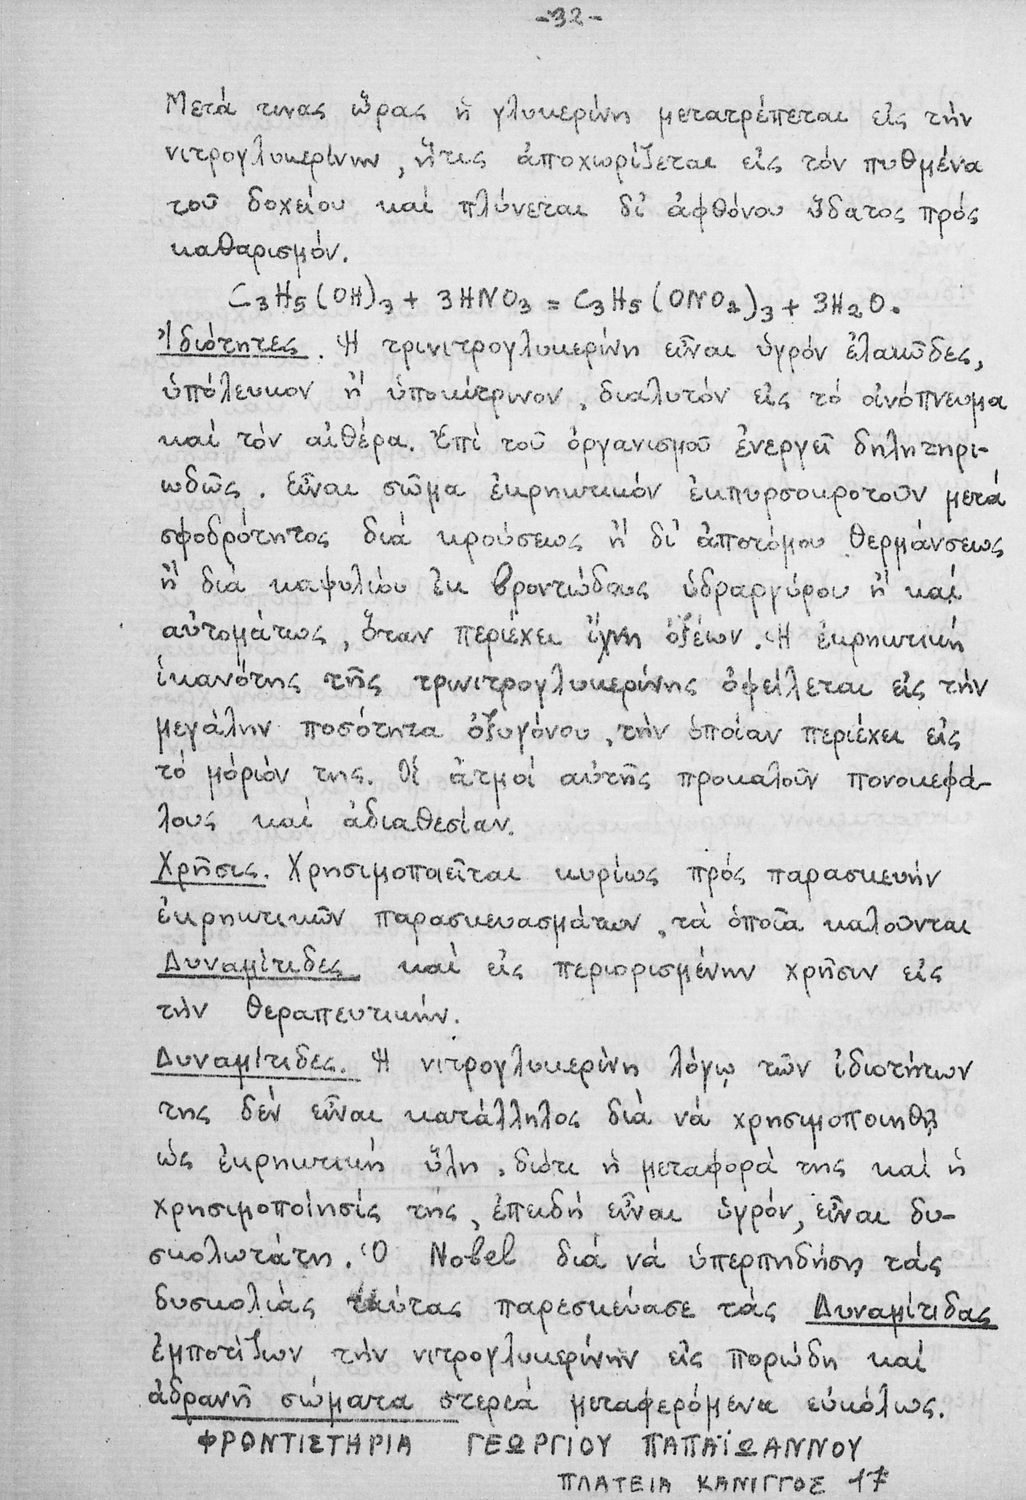 -32-
Μετά τινας ὥρας ἡ γλυκερίνη μετατρέπεται εἰς τήν
νιτρογλυκερίνην, ἥτις ἀποχωρίζεται εἰς τόν πυθμένα
τοῦ δοχείου καί πλύνεται δι' ἀφθόνου ὕδατος πρός
καθαρισμόν.
C₃H₅(OH)₃ + 3HNO₃ = C₃H₅(ONO₂)₃ + 3H₂O.
Ἰδιότητες. Ἡ τρινιτρογλυκερίνη εἶναι ὑγρόν ἐλαιῶδες,
ὑπόλευκον ἤ ὑποκίτρινον, διαλυτόν εἰς τό οἰνόπνευμα
καί τόν αἰθέρα. Ἐπί τοῦ ὀργανισμοῦ ἐνεργεῖ δηλητηρι-
ωδῶς. Εἶναι σῶμα ἐκρηκτικόν ἐκπυρσοκροτοῦν μετά
σφοδρότητος διά κρούσεως ἤ δι' ἀποτόμου θερμάνσεως
ἤ διά καψυλίου ἐκ βροντώδους ὑδραργύρου ἤ καί
αὐτομάτως, ὅταν περιέχει ἴχνη ὀξέων. Ἡ ἐκρηκτική
ἱκανότης τῆς τρινιτρογλυκερίνης ὀφείλεται εἰς τήν
μεγάλην ποσότητα ὀξυγόνου, τήν ὁποίαν περιέχει εἰς
τό μόριόν της. Οἱ ἀτμοί αὐτῆς προκαλοῦν πονοκεφά-
λους καί ἀδιαθεσίαν.
Χρῆσις. Χρησιμοποιεῖται κυρίως πρός παρασκευήν
ἐκρηκτικῶν παρασκευασμάτων, τά ὁποῖα καλοῦνται
Δυναμίτιδες καί εἰς περιορισμένην χρῆσιν εἰς
τήν θεραπευτικήν.
Δυναμίτιδες. Ἡ νιτρογλυκερίνη λόγῳ τῶν ἰδιοτήτων
της δέν εἶναι κατάλληλος διά νά χρησιμοποιηθῇ
ὡς ἐκρηκτική ὕλη, διότι ἡ μεταφορά της καί ἡ
χρησιμοποίησίς της, ἐπειδή εἶναι ὑγρόν, εἶναι δυ-
σκολωτάτη. Ὁ Nobel διά νά ὑπερπηδήσῃ τάς
δυσκολίας ταύτας παρεσκεύασε τάς Δυναμίτιδας
ἐμποτίζων τήν νιτρογλυκερίνην εἰς πορώδη καί
ἀδρανῆ σώματα στερεά μεταφερόμενα εὐκόλως.
ΦΡΟΝΤΙΣΤΗΡΙΑ ΓΕΩΡΓΙΟΥ ΠΑΠΑΪΩΑΝΝΟΥ
ΠΛΑΤΕΙΑ ΚΑΝΙΓΓΟΣ 17